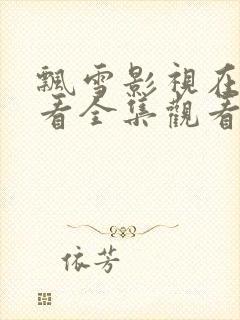 飄雪影視在
看全集觀看
依芳